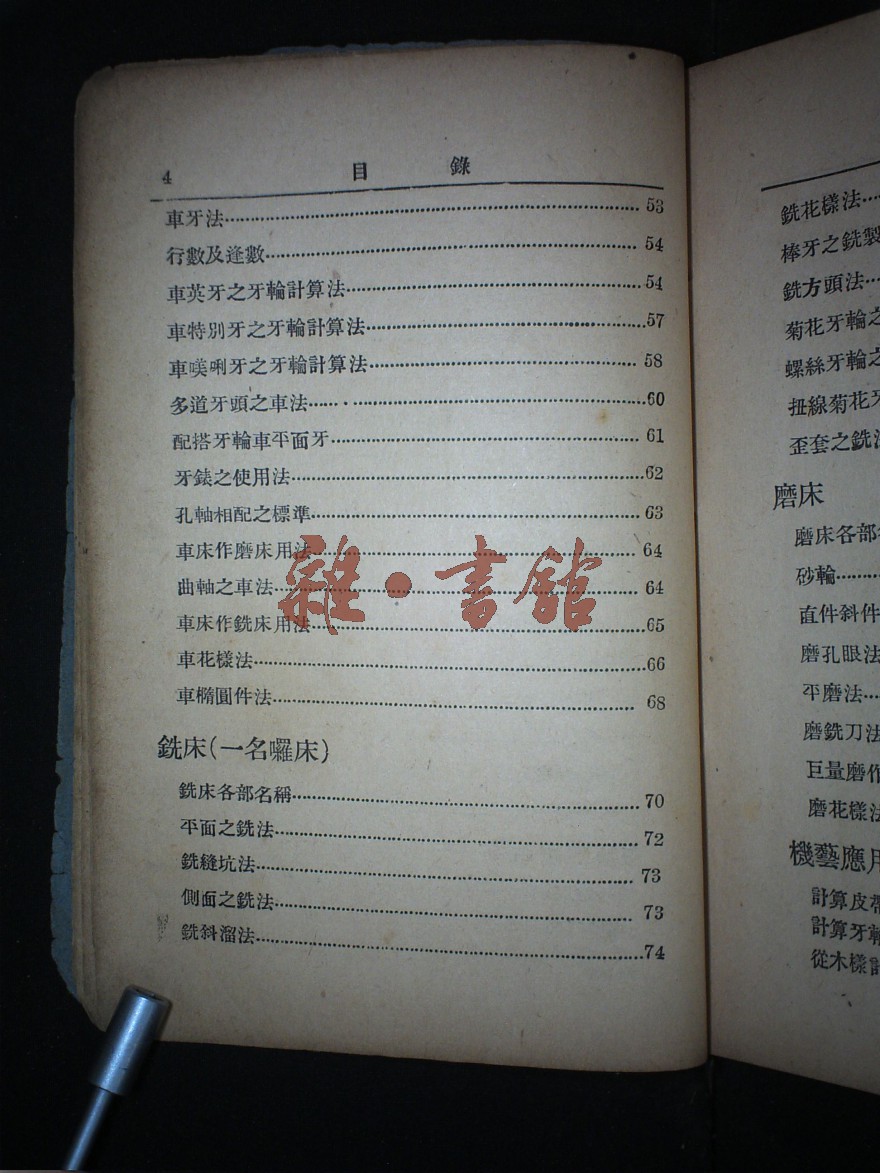 4 目 錄
車牙法 53
行數及逢數 54
車英牙之牙輪計算法 54
車特別牙之牙輪計算法 57
車嘆唎牙之牙輪計算法 58
多道牙頭之車法 60
配搭牙輪車平面牙 61
牙錶之使用法 62
孔軸相配之標準 63
車床作磨床用法 64
曲軸之車法 64
車床作銑床用法 65
車花樣法 66
車橢圓件法 68
銑床(一名囉床)
銑床各部名稱 70
平面之銑法 72
銑縫坑法 73
側面之銑法 73
銑斜溜法 74
雜·書館
銑花樣法
棒牙之銑製
銑方頭法
菊花牙輪之
螺絲牙輪之
扭線菊花牙
歪套之銑
磨床
磨床各部
砂輪
直件斜件
磨孔眼法
平磨法
磨銑刀法
巨量磨作
磨花樣法
機藝應用
計算皮帶
計算牙輪
從木樣計